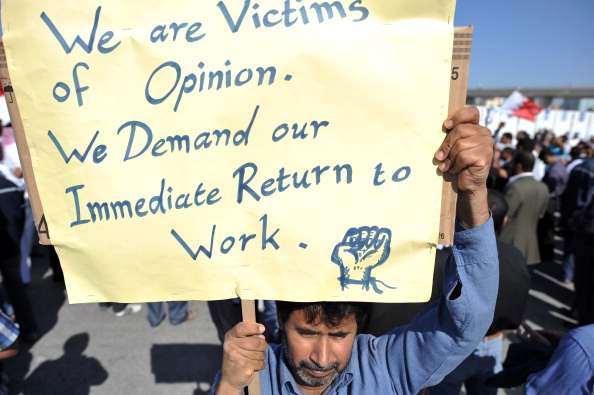 We are Victims
of Opinion.
We Demand our
Immediate Return to
Work.
5
4
26